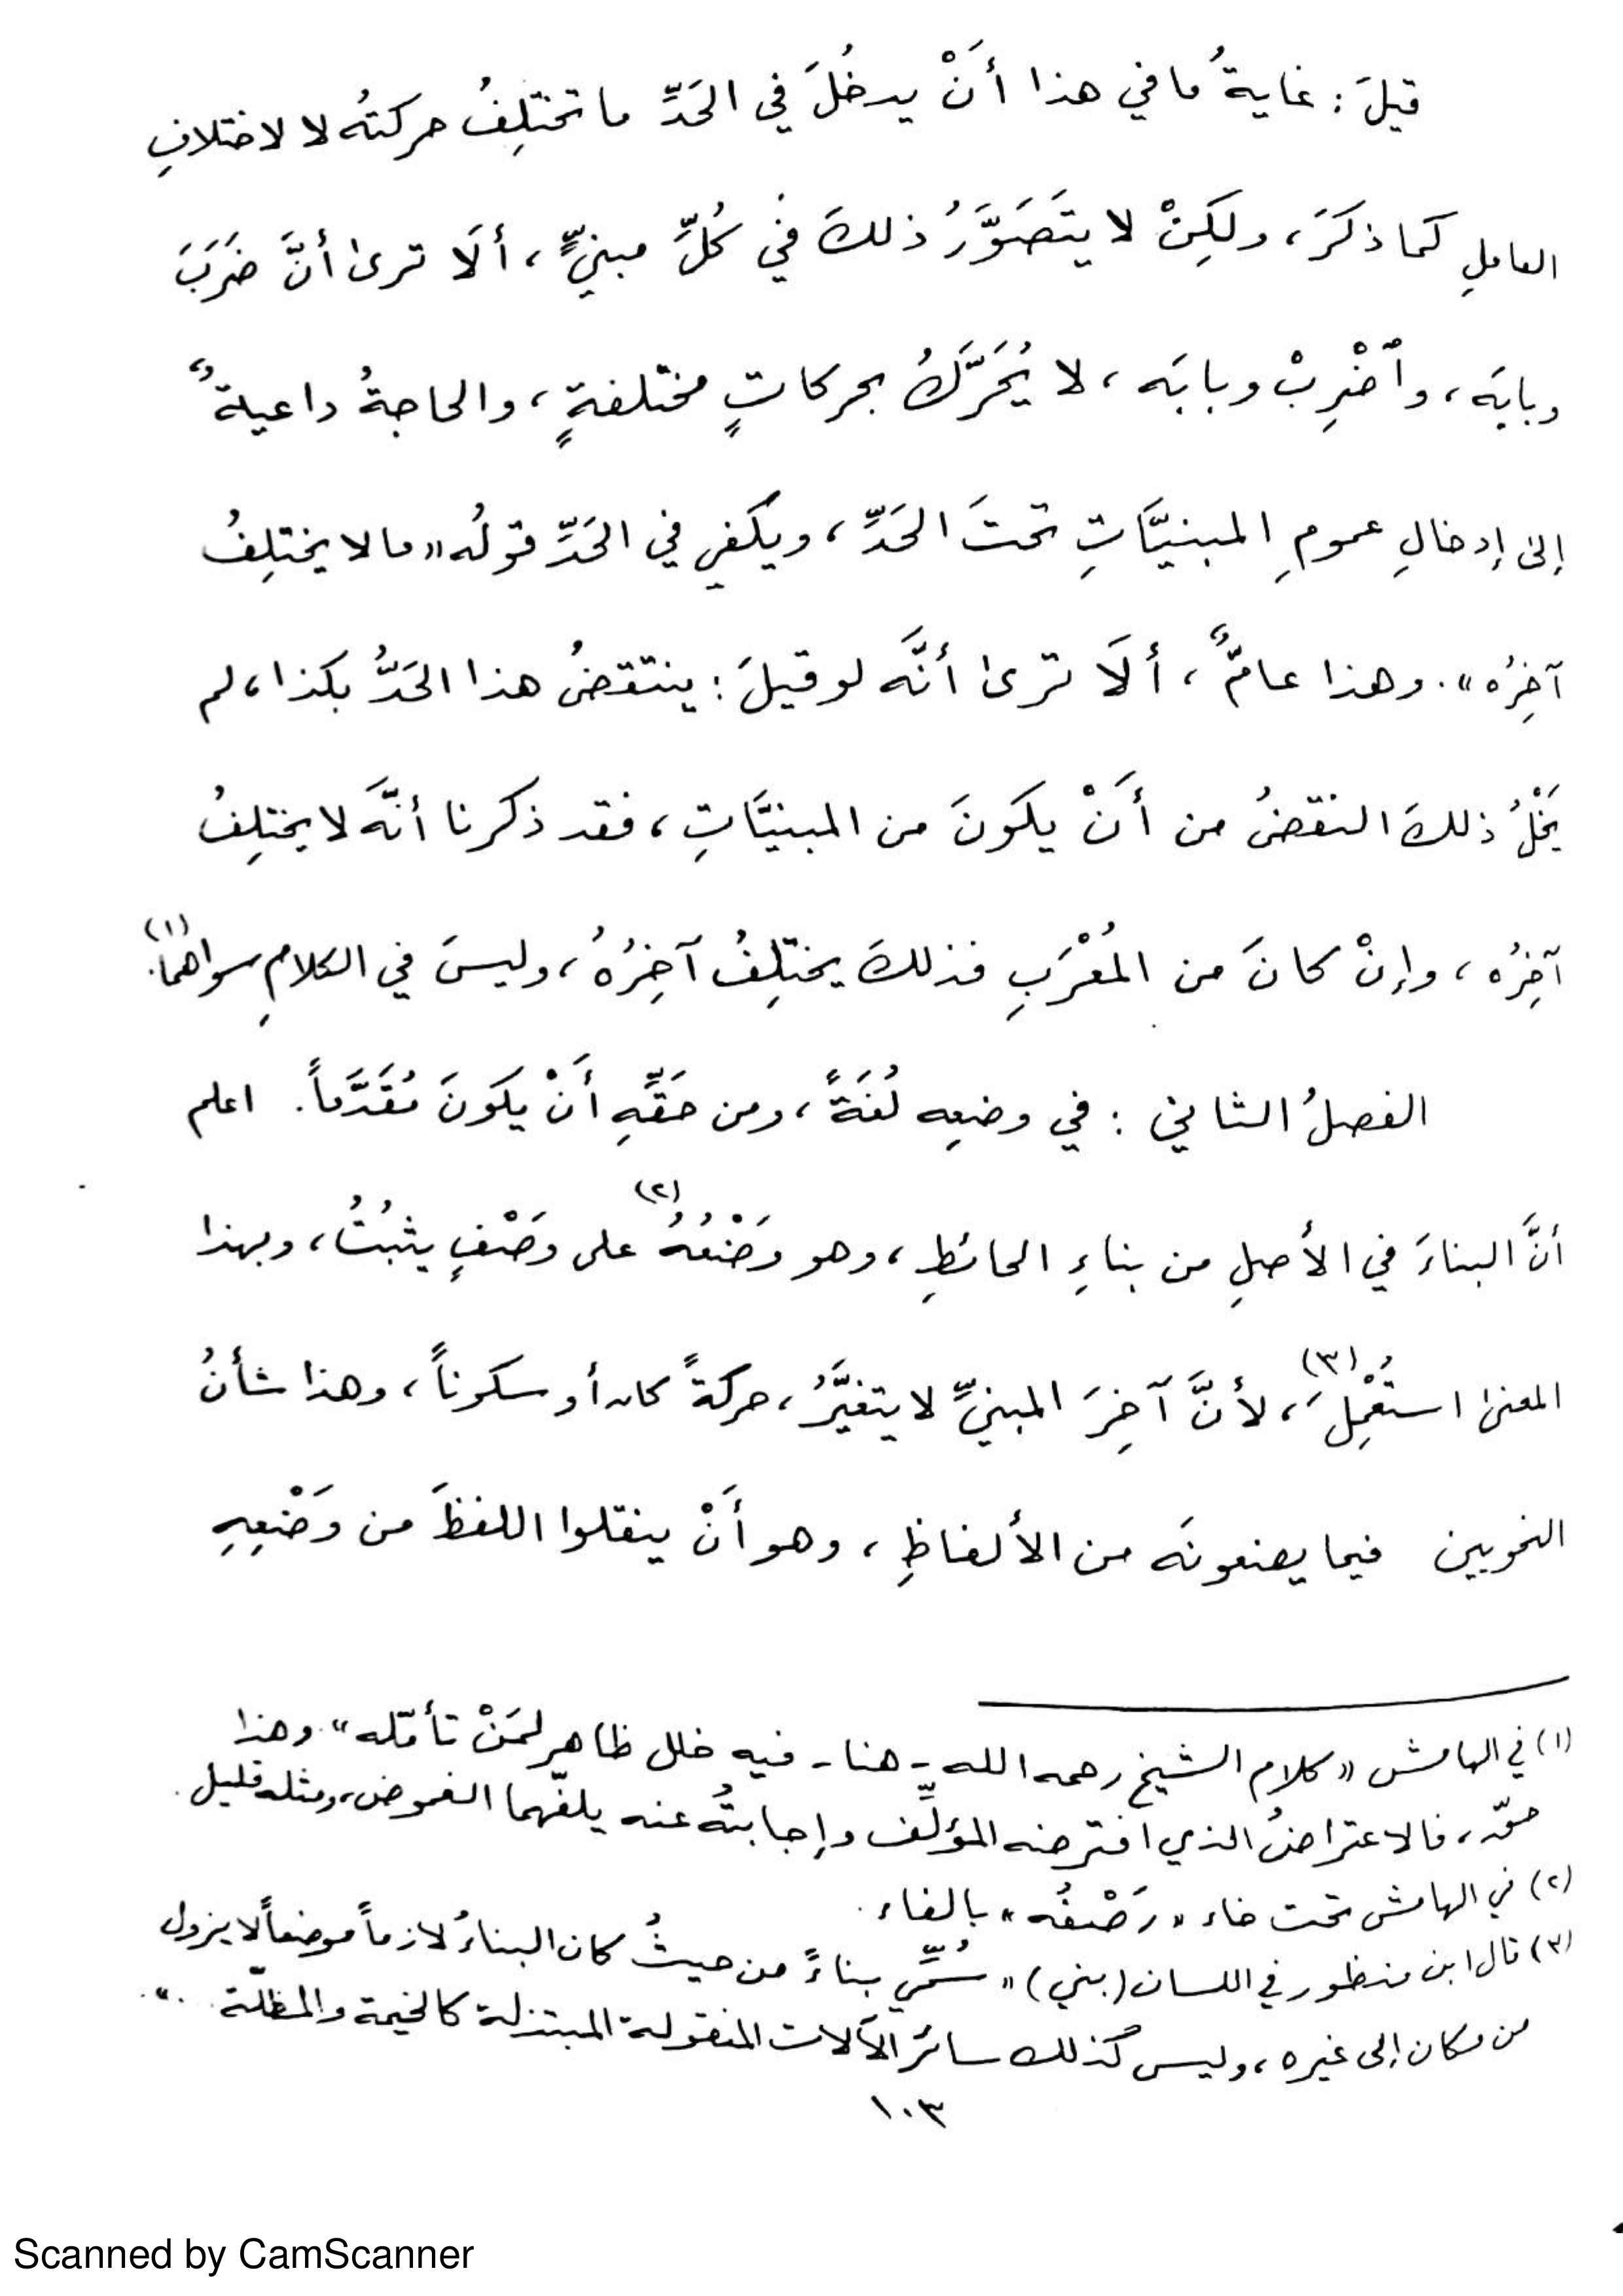 قيلَ : غايةُ ما في هذا أَنْ يدخُلَ في الحَدِّ ما تختَلِفُ حركتُه لا لاختلافِ
العاملِ كما ذكَرَ، ولكِنْ لا يتَصَوَّرُ ذلكَ في كُلِّ مبنيٍّ ، ألَا ترى أنَّ ضَرَبَ
وبابَه ، وٱضْرِبْ وبابَه ، لا يُحَرَّكُ بحركاتٍ مختلفةٍ ، والحاجةُ داعيةٌ
إلى إدخالِ عمومِ المبنيَّاتِ تحتَ الحَدِّ ، ويكفي في الحَدِّ قولُه «ما لا يختلِفُ
آخِرُه». وهذا عامٌّ ، ألَا ترى أنَّه لو قيلَ : ينتقضُ هذا الحَدُّ بكذا، لم
يَخْلُ ذلكَ النقضُ من أَنْ يكونَ من المبنيَّاتِ ، فقد ذكرنا أنَّه لا يختلِفُ
آخِرُه ، وإنْ كانَ من المُعْرَبِ فذلكَ يختَلِفُ آخِرُهُ ، وليسَ في الكلامِ سواهُما(١).
الفصلُ الثاني : في وضعِه لُغَةً ، ومن حَقِّهِ أَنْ يكونَ مُقَدَّماً. اعلم
أنَّ البناءَ في الأصلِ من بناءِ الحائطِ ، وهو وَضْعُهُ(٢) على وصْفٍ يثبُتُ ، وبهذا
المعنى استُعْمِلَ(٣) ، لأنَّ آخِرَ المبنيِّ لا يتغيَّرُ ، حركةً كان أو سكوناً ، وهذا شأنُ
النحويين فيما يصنعونَه من الألفاظِ ، وهو أَنْ ينقلوا اللفظَ من وَضْعِهِ
(١) في الهامش «كلام الشيخ رحمه الله - هنا - فيه خلل ظاهر لمَنْ تأمّله» وهذا
حقّ، فالاعتراضُ الذي افترضه المؤلِّف وإجابتُه عنه يلفّهما الغموض، ومثله قليل .
(٢) في الهامش تحت خاء «رَصْفُه» بالفاء .
(٣) قال ابن منظور في اللسان (بني) «سُمِّي بناءً من حيثُ كان البناءُ لازماً موضعاً لا يزول
من مكان إلى غيره ، وليس كذلك سائر الآلات المنقولة المبتذلة كالخيمة والمظلّة ..».
١٠٣
Scanned by CamScanner